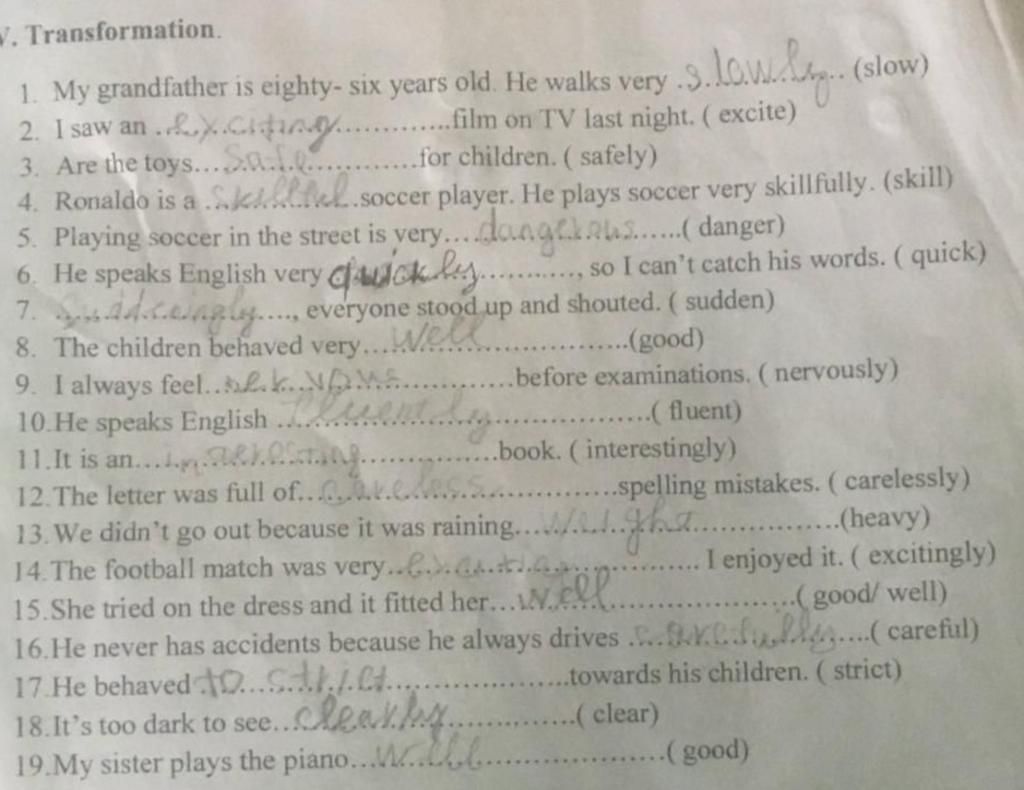 V. Transformation.
1. My grandfather is eighty- six years old. He walks very .slowly.. (slow)
2. I saw an ..exciting............film on TV last night. ( excite)
3. Are the toys...safe............for children. ( safely)
4. Ronaldo is a ..skillful.soccer player. He plays soccer very skillfully. (skill)
5. Playing soccer in the street is very....dangerous......( danger)
6. He speaks English very quickly..........., so I can't catch his words. ( quick)
7. suddeingly...., everyone stood up and shouted. ( sudden)
8. The children behaved very...well...............(good)
9. I always feel..nervous............before examinations. ( nervously)
10.He speaks English ...fluently...............( fluent)
11.It is an...interesting..............book. ( interestingly)
12.The letter was full of...careless...............spelling mistakes. ( carelessly)
13.We didn't go out because it was raining...weight...............(heavy)
14.The football match was very..exciting........... I enjoyed it. ( excitingly)
15.She tried on the dress and it fitted her...well..................( good/ well)
16.He never has accidents because he always drives ..carefully....( careful)
17.He behaved to strict..................towards his children. ( strict)
18.It's too dark to see...clearly.............( clear)
19.My sister plays the piano...well..................( good)